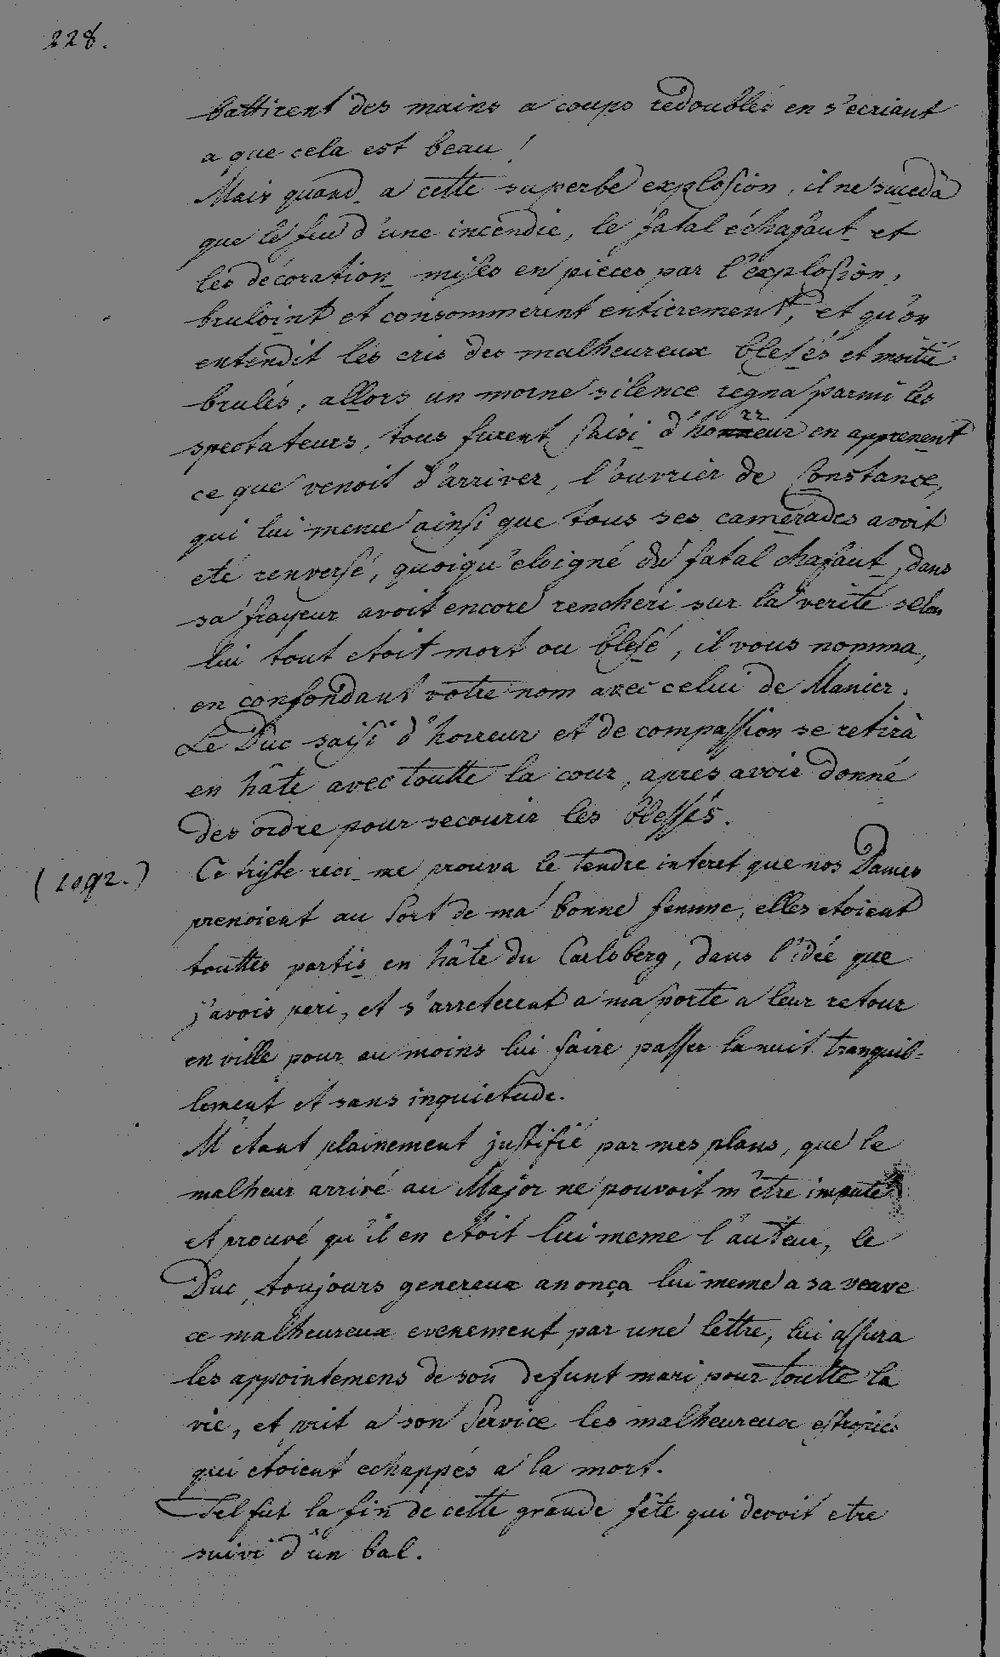 228.
battirent des mains a coups redoublés en s'ecriant
a que cela est beau !
Mais quand a cette superbe explosion, il ne succeda
que le feu d'une incendie, le fatal échafaut et
les décoration mises en pieces par l'explosion,
bruloint et consommerent entierement, et qu'on
entendit les cris des malheureux blesés et moitié
brulés, allors un morne silence regna parmi les
spectateurs, tous furent saisi d'horreur en apprenent
ce que venoit d'arriver, l'ouvrier de Constance,
qui lui meme ainsi que tous ses camerades avoit
eté renversé, quoiqu'eloigné du fatal chafaut, dans
sa frayeur avoit encore rencheri sur la verité selon
lui tout etoit mort ou blesé, il vous nomma,
en confondant votre nom avec celui de Manier.
Le Duc saisi d'horreur et de compassion se retira
en hâte avec toutte la cour, apres avoir donné
des ordre pour secourir les blessés.
(1092.) Ce triste reci me prouva le tendre interet que nos Dames
prenoient au sort de ma bonne femme, elles etoient
touttes partis en hâte du Carlsberg, dans l'idée que
j'avois peri, et s'arreterent a ma porte a leur retour
en ville pour au moins lui faire passer la nuit tranquil=
lement et sans inquietude.
M'etant plainement justifié par mes plans, que le
malheur arrivé au Major ne pouvoit m'être imputé
et prouvé qu'il en etoit lui meme l'auteur, le
Duc, toujours genereux anonça lui meme a sa veuve
ce malheureux evenement par une lettre, lui assura
les appointemens de son defunt mari pour toutte la
vie, et prit a son service les malheureux estropiés
qui etoient echappés a la mort.
Tel fut la fin de cette grande fête qui devoit etre
suivi d'un bal.